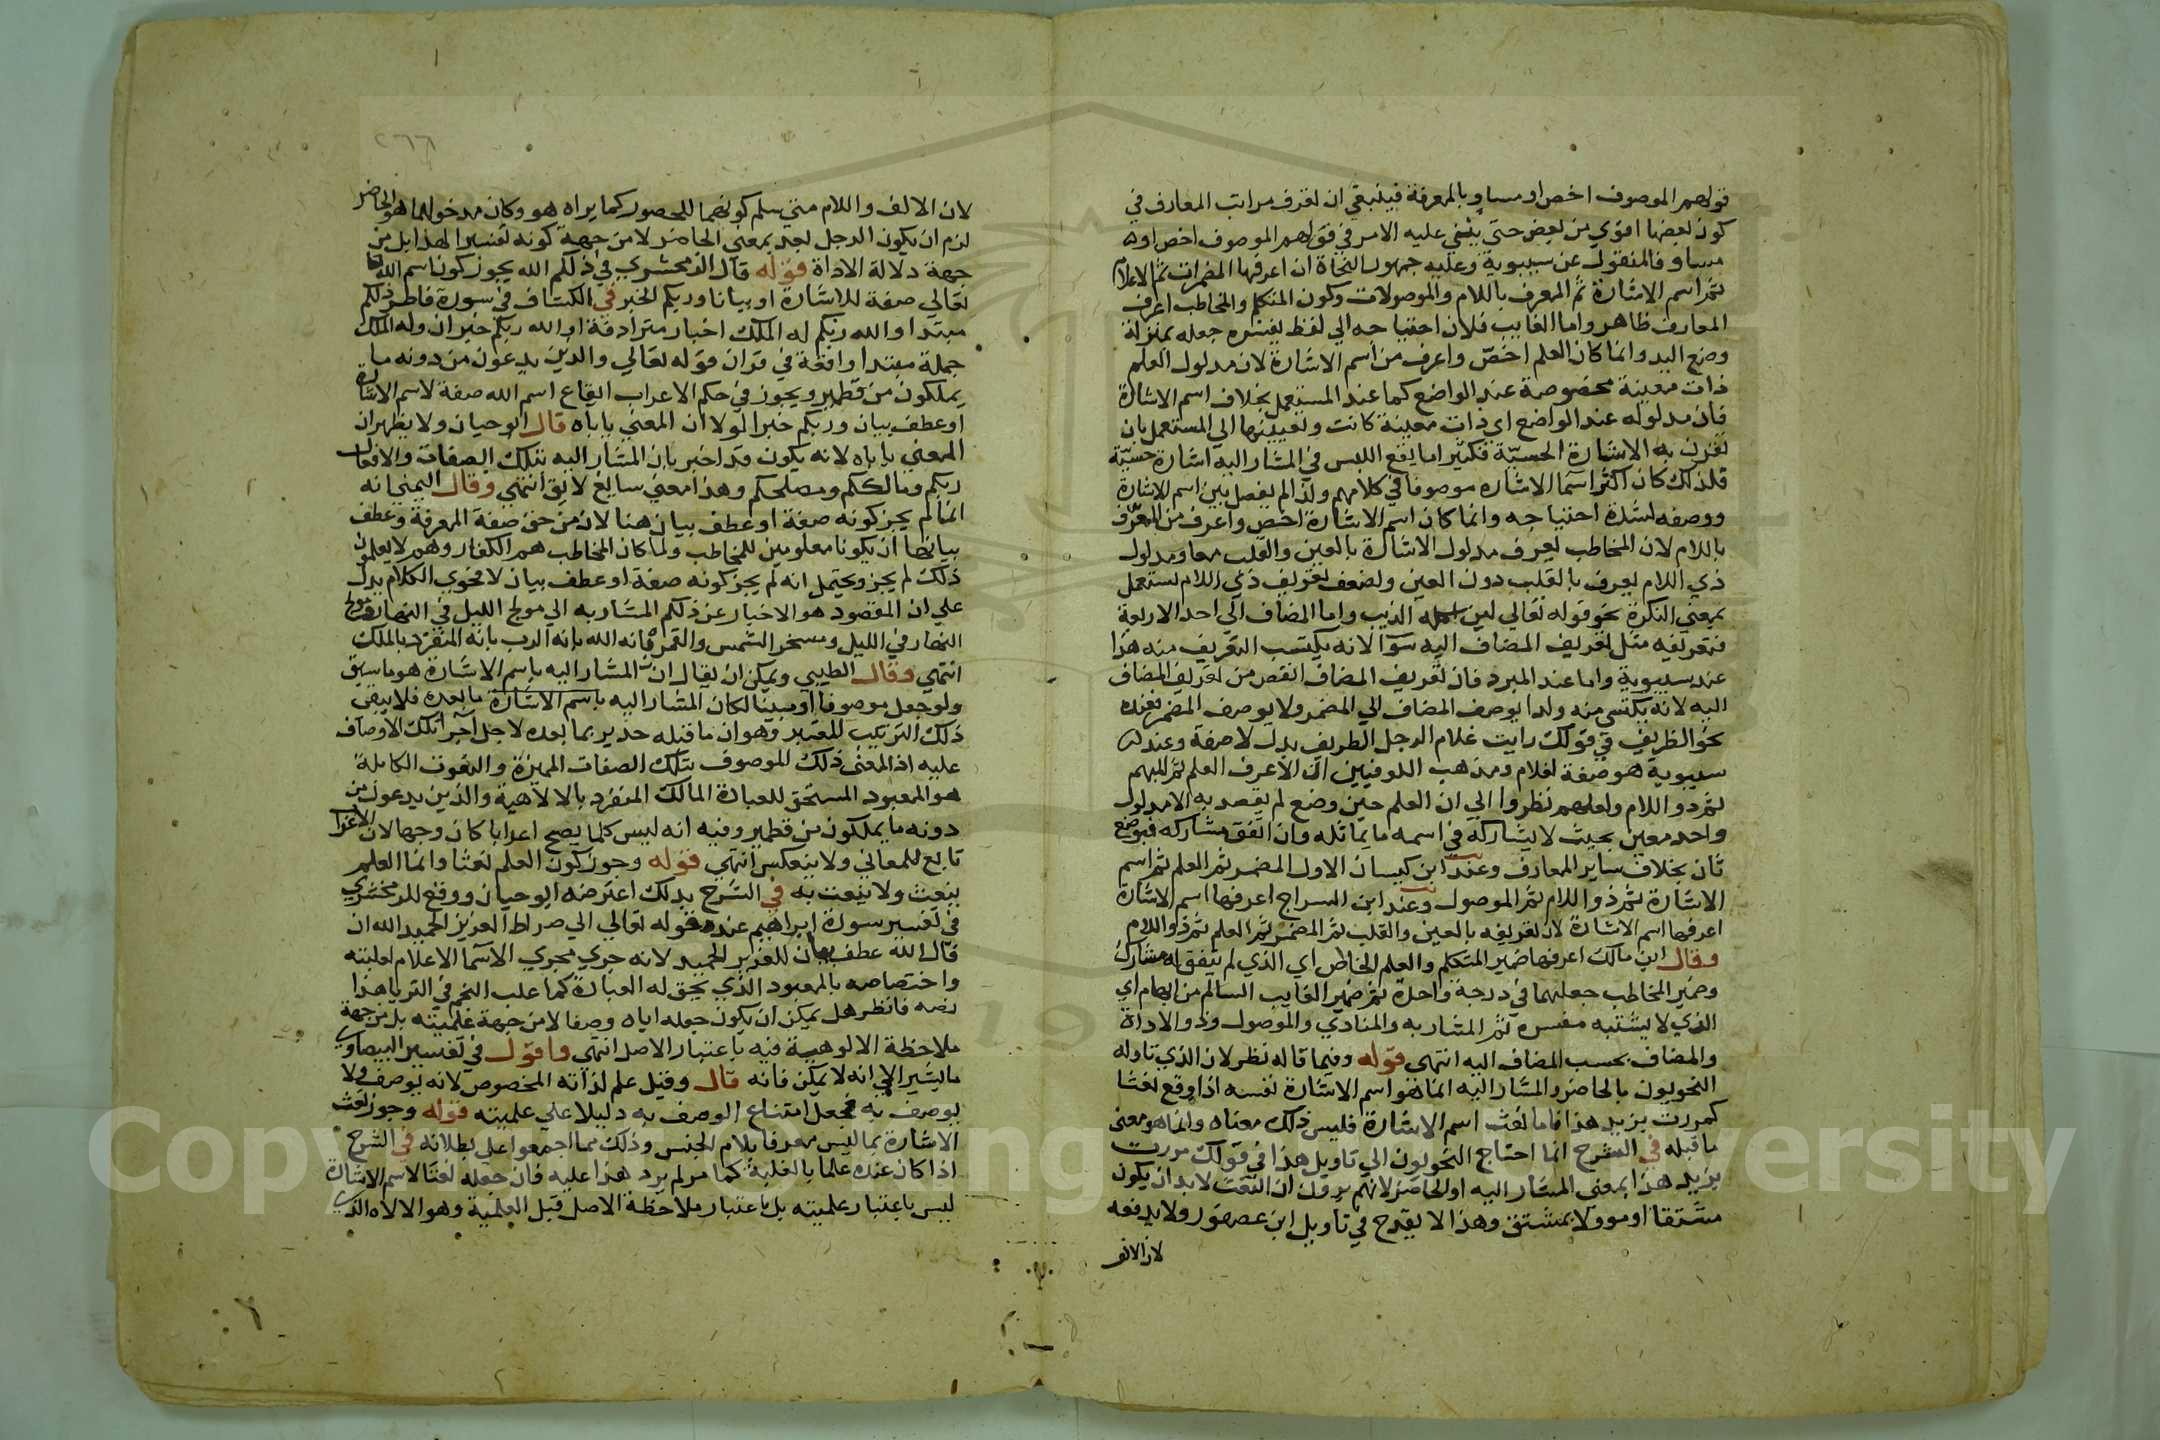 قولهم الموصوف اخص او مساو بالمعرفة فينبغي ان تعرف مراتب المعارف في
كون بعضها اقوي من بعض حتي يبني عليه الامر في قولهم الموصوف اخص او
مساو فالمنقول عن سيبويه وعليه جمهور النحاة ان اعرفها المضمرات ثم الاعلام
ثم اسم الاشارة ثم المعرف باللام والموصولات وكون المتكلم والمخاطب اعرف
المعارف ظاهر واما الغايب فلان احتياجه الي لفظ يفسره جعله بمنزلة
وضع اليد وانما كان العلم اخص واعرف من اسم الاشارة لان مدلول العلم
ذات معينة مخصوصة عند الواضع كما عند المستعمل بخلاف اسم الاشارة
فان مدلوله عند الواضع اي ذات معينة كانت وتعيينها الي المستعمل بان
تقترن به الاشارة الحسية فكثيرا ما يقع اللبس في المشار اليه اشارة حسية
فلذلك كان اكثر اسما الاشاره موصوفا في كلامهم ولذا لم يفصل بين اسم الاشارة
ووصفه لشدة احتياجه وانما كان اسم الاشارة اخص واعرف من المعرف
باللام لان المخاطب يعرف مدلول الاشارة بالعين والقلب معا ومدلول
ذي اللام يعرف بالقلب دون العين ولضعف تعريف ذي اللام يستعمل
بمعني النكرة نحو قوله تعالي لين اكله الذيب واما المضاف الي احد الاربعة
فتعريفه مثل تعريف المضاف اليه سوا لانه يكتسب التعريف منه هذا
عند سيبويه واما عند المبرد فان تعريف المضاف انقص من تعريف المضاف
اليه لانه يكتسي منه ولذا يوصف المضاف الي المضمر ولا يوصف المضمر فعنده
نحو الظريف في قولك رايت غلام الرجل الظريف بدل لا صفة وعند
سيبويه هو صفة لغلام ومذهب الكوفيين ان الاعرف العلم ثم المبهم
ثم ذو اللام ولعلهم نظروا الي ان العلم حين وضع لم يقصد به الا مدلول
واحد معين بحيث لا يشاركه في اسمه ما يماثله وان اتفق مشاركه فبوضع
ثان بخلاف ساير المعارف وعند ابن كيسان الاول المضمر ثم العلم ثم اسم
الاشارة ثم ذو اللام ثم الموصول وعند ابن السراج اعرفها اسم الاشارة
اعرفها اسم الاشارة لان تعريفه بالعين والقلب ثم المضمر ثم العلم ثم ذو اللام
وقال ابن مالك اعرفها ضمير المتكلم والعلم الخاص اي الذي لم يتفق له مشارك
وضمير المخاطب جعلهما في درجة واحدة ثم ضمير الغايب السالم من ابهام اي
الذي لا يشتبه مفسره ثم المشار به والمنادي والموصول وذو الاداة
والمضاف بحسب المضاف اليه انتهي قوله وفيما قاله نظر لان الذي تاوله
النحويون بالحاضر والمشار اليه انما هو اسم الاشارة نفسه اذا وقع نعتا
كمررت بزيد هذا فاما نعت اسم الاشارة فليس ذلك معناه وانما هو معني
ما قبله في الشرح انما احتاج النحويون الي تاويل هذا في قولك مررت
بزيد هذا بمعني المشار اليه او الحاضر لانهم يرون ان النعت لا بد ان يكون
مشتقا او موولا بمشتق وهذا لا يقدح في تاويل ابن عصفور ولا يدفعه
لان الالف
لان الالف واللام متي سلم كونهما للحضور كما يراه هو وكان مدخولهما هو الحاضر
لزم ان يكون الرجل بعد بمعني الحاضر لا من جهة كونه تفسيرا لهذا بل من
جهة دلالة الاداة قوله قال الزمخشري في ذلكم الله يجوز كون اسم الله
تعالي صفة للاشارة او بيانا وربكم الخبر في الكشاف في سورة فاطر ذلكم
مبتدا والله ربكم له الملك اخبار مترادفة او الله ربكم خبران وله الملك
جملة مبتدا واقعة في قران قوله تعالي والذين يدعون من دونه ما
يملكون من قطمير ويجوز في حكم الاعراب ايقاع اسم الله صفة لاسم الاشارة
او عطف بيان وربكم خبرا لولا ان المعني ياباه قال ابو حيان ولا يظهر ان
المعني ياباه لانه يكون قد اخبر بان المشار اليه بتلك الصفات والافعال
ربكم ومالككم ومصلحكم وهذا معني سايغ لايق انتهي وقال اليمني انه
انما لم يجز كونه صفة او عطف بيان هنا لان من حق صفة المعرفة وعطف
بيانها ان يكونا معلومين للمخاطب ولما كان المخاطب هم الكفار وهم لا يعلمون
ذلك لم يجز ويحتمل انه لم يجز كونه صفة او عطف بيان لا فحوي الكلام يدل
علي ان المقصود هو الاخبار عن ذلكم المشار به الي مولج الليل في النهار ومولج
النهار في الليل ومسخر الشمس والقمر فانه الله بانه الرب بانه المتفرد بالملك
انتهي وقال الطيبي ويمكن ان يقال ان المشار اليه باسم الاشارة هو ما سبق
ولو جعل موصوفا او مبينا لكان المشار اليه باسم الاشارة ما بعده فلا يبقي
ذلك التركيب المعتبر وهو ان ما قبله جدير بما بعده لاجل اجرا تلك الاوصاف
عليه اذ المعني ذلك الموصوف بتلك الصفات المميزة والنعوت الكاملة
هو المعبود المستحق للعبادة المالك المنفرد بالالاهية والذين يدعون من
دونه ما يملكون من قطمير وفيه انه ليس كلما يصح اعرابا كان وجها لان الاعراب
تابع للمعاني ولا ينعكس انتهي قوله وجوز كون العلم نعتا وانما العلم
ينعت ولا ينعت به في الشرح بذلك اعترضه ابو حيان ووقع للزمخشري
في تفسير سورة ابراهيم عند قوله تعالي الي صراط العزيز الحميد الله ان
قال الله عطف بيان للعزيز الحميد لانه جري مجري الاسما الاعلام لغلبته
واختصاصه بالمعبود الذي يحق له العبادة كما غلب النجم في الثريا هذا
نصه فانظر هل يمكن ان يكون جعله اياه وصفا لا من جهة علميته بل من جهة
ملاحظة الالوهية فيه باعتبار الاصل انتهي واقول في تفسير البيضاوي
ما يشير الي انه لا يمكن فانه قال وقيل علم لذاته المخصوص لانه يوصف ولا
يوصف به فجعل امتناع الوصف به دليلا علي علميته قوله وجوز نعت
الاشارة بما ليس معرفا بلام الجنس وذلك مما اجمعوا علي بطلانه في الشرح
اذا كان عنده علما بالغلبة كما مر لم يرد هذا عليه فان جعله نعتا لاسم الاشارة
ليس باعتبار علميته بل باعتبار ملاحظة الاصل قبل العلمية وهو الالاه الذي